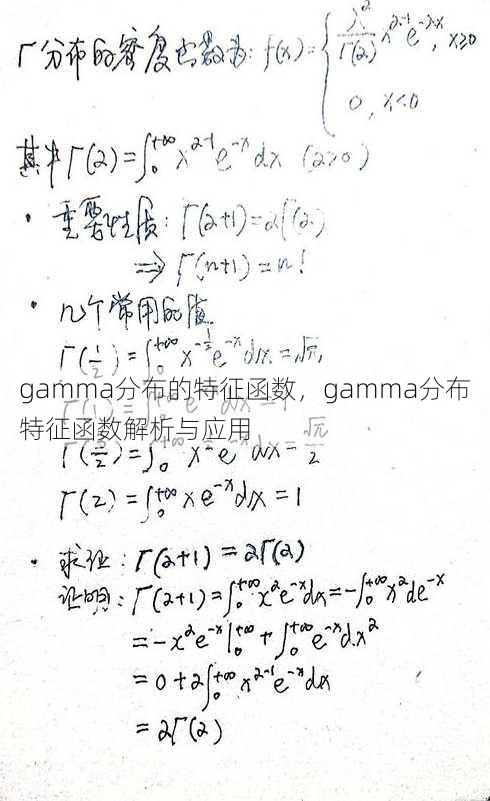 Γ分布的密度函数为: f(x) = { λ^α/Γ(α) x^(α-1) e^(-λx), x≥0
0, x<0
其中Γ(α) = ∫₀^(+∞) x^(α-1) e^(-x) dx (α>0)
· 重要性质: Γ(α+1)=αΓ(α)
⇒ Γ(n+1) = n!
· 几个常用的值
Γ(1/2) = ∫₀^(+∞) x^(-1/2) e^(-x) dx = √π
gamma分布的特征函数，gamma分布
特征函数解析与应用
Γ(3/2) = ∫₀ x e dx = √π/2
Γ(2) = ∫₀^(+∞) x e^(-x) dx = 1
· 求证: Γ(α+1) = αΓ(α)
证明: Γ(α+1) = ∫₀^(+∞) x^α e^(-x) dx = -∫₀^(+∞) x^α de^(-x)
= -x^α e^(-x) |₀^(+∞) + ∫₀^(+∞) e^(-x) dx^α
= 0 + α∫₀^(+∞) x^(α-1) e^(-x) dx
= αΓ(α)